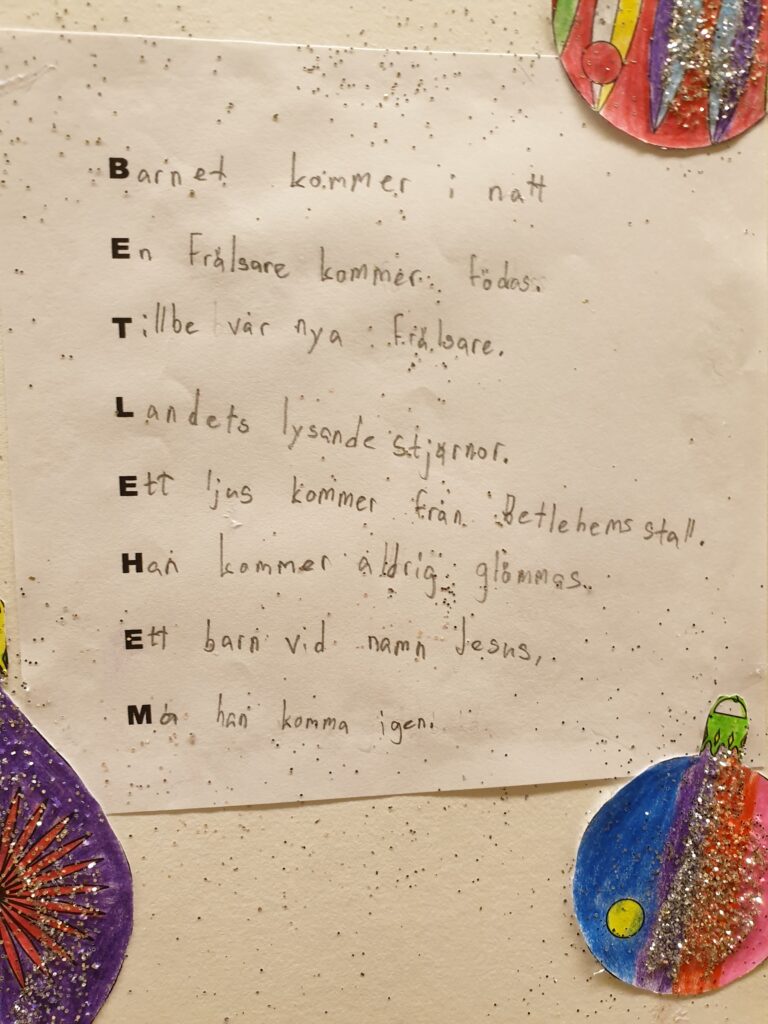 Barnet kommer i natt
En Frälsare kommer födas.
Tillbe vår nya Frälsare.
Landets lysande stjärnor.
Ett ljus kommer från Betlehems stall.
Han kommer aldrig glömmas.
Ett barn vid namn Jesus,
Må han komma igen.